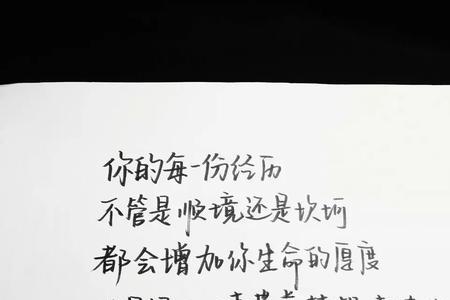 你的每一份经历
不管是顺境还是坎坷
都会增加你生命的厚度